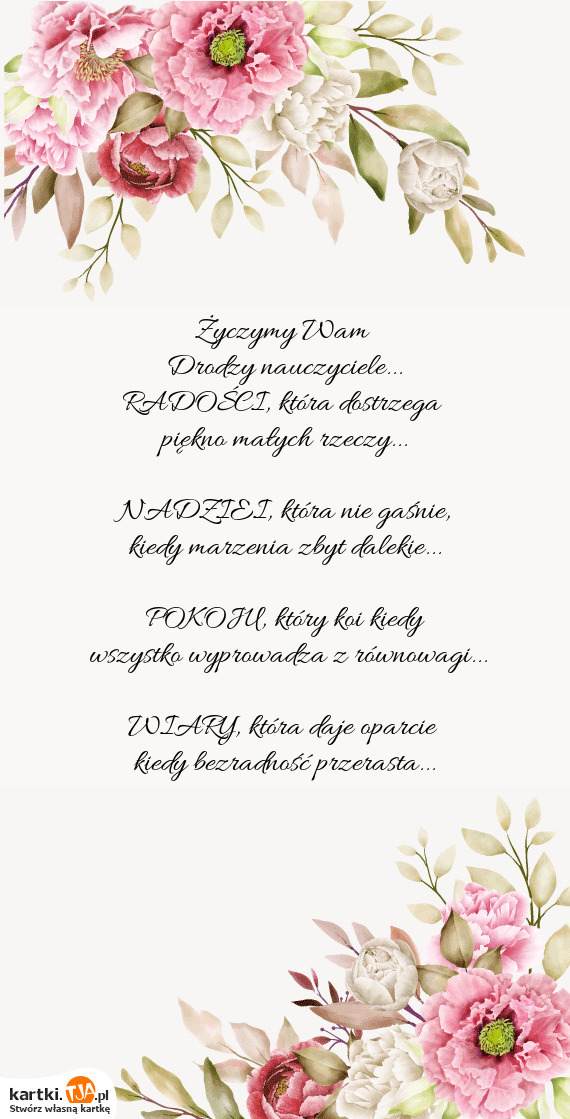 Życzymy Wam
Drodzy nauczyciele...
RADOŚCI, która dostrzega
piękno małych rzeczy...
NADZIEI, która nie gaśnie,
kiedy marzenia zbyt dalekie...
POKOJU, który koi kiedy
wszystko wyprowadza z równowagi...
WIARY, która daje oparcie
kiedy bezradność przerasta...
kartki.TJA.pl
Stwórz własną kartkę